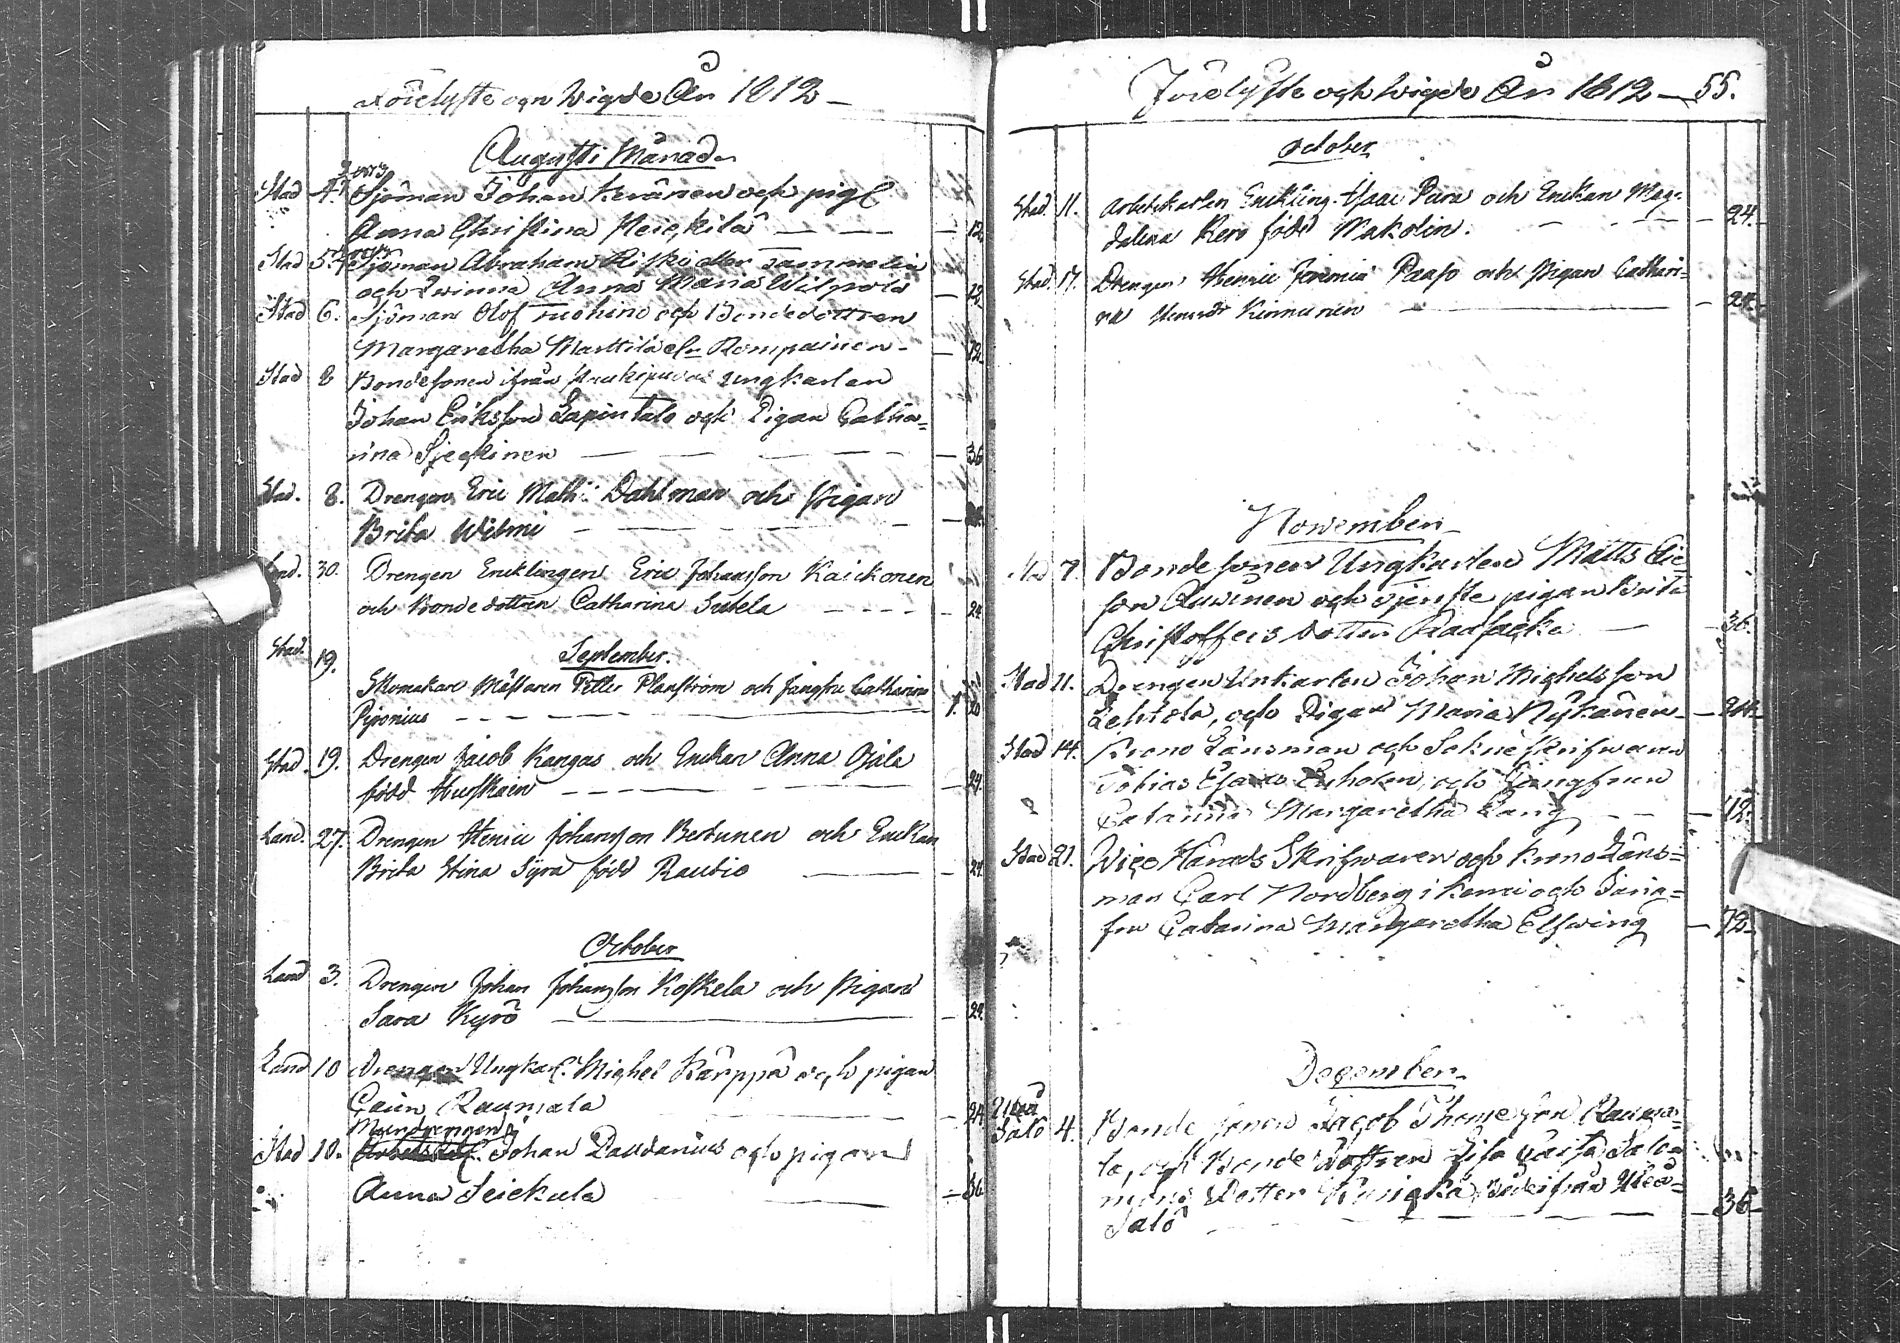 Förelyste och Wigde År 1812
Augusti Månad
Stad 4. Sjöman Johan Keränen och pig.
Anna Christina Heickilä 12
Stad 5. Sjöman Abraham Risko eller Sammelin
och qwinna Anna Maria 12
Stad 6. Sjöman Olof och Bondedottren
Margaretha Marttila el. Rompainen 12
Stad 8 Bondesonen ifrån Haukipudas ungkarlen
Johan Eriksson Lapintalo och Pigan Catha=
rina Sjeckinen 36
Stad. 8. Drengen Eric Math: Dahlman och Pigan
Brita Wilmi
Land. 30. Drengen Enklingen Eric Johansson Kaickonen
och Bondedottren Catharina Sutela 24
Stad. 19. September.
Skomakare Mästaren Petter Planström och Jungfru Catharina
Pyronius 1. 20
Stad. 19. Drengen Jacob Kangas och Enckan Anna Ojala
född Huskain 24.
Land. 27. Drengen Henric Johansson Bertunen och Enckan
Brita Stina Syra född Raudio 24.
October
Land 3. Drengen Johan Johansson Koskela och Pigan
Sara Kyrö 24.
Land 10 Drengen Ungkarl. Mickel Kärppä och pigan
Caisa Raumala 24
Mundrengen
Stad 10. Johan Paudanius och pigan
Anna Seickula 36
Förelyste och Wigde År 1812 55.
October
Stad. 11. Arbetskarlen Enkling. Isaac Pura och Enckan Mag=
dalena Kero född Makolin. 24.
Stad. 17. Drengen Henric Jeremiæ Paaso och Pigan Cathari=
na Henricsdr Kinnunen 24.
November
Stad 7. Bondesonen Ungkarlen Matts Eric
son Auwinen och tjenste pigan Brita
Christoffersdotter Raasacka 36.
Stad 11. Drengen Unkarlen Johan Michelsson
Lehtola, och Pigan Maria Nykänen 24.
Stad 14. Krono Länsman och Sokneskrifwaren
Tobias Esaias Enholm, och Jungfrun
Catarina Margaretha Lang 72.
Stad 21. Wice Härads Skrifwaren och Krono Läns=
man Carl Nordberg i Kemi och Jung=
fru Catarina Margaretha Elfwing 72.
December
Uleå
Salo 4. Bonde sonen Jacob Thomesson Rauma=
la, och Bonde dottren Lisa Caisa Salo=
mons Dotter både ifrån Uleå=
Salo 36